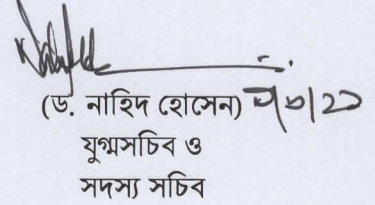 (ড. নাহিদ হোসেন)
যুগ্মসচিব ও
সদস্য সচিব